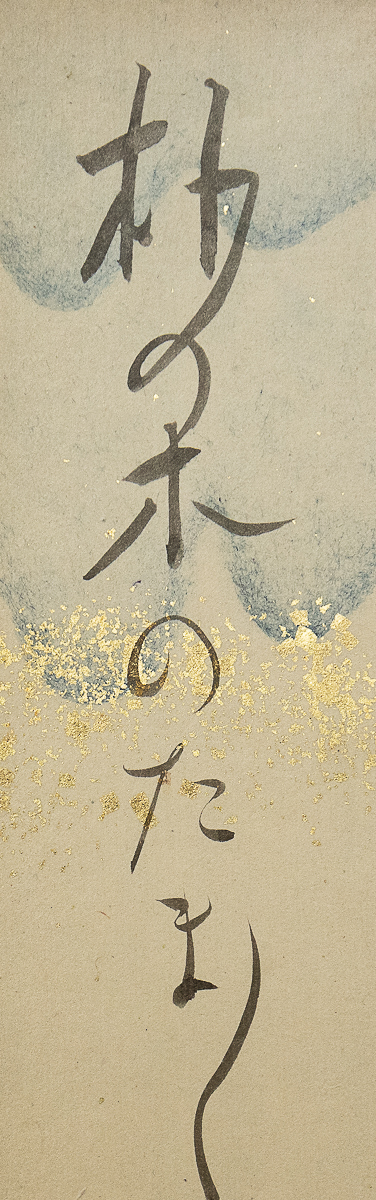 朴の木のたまし